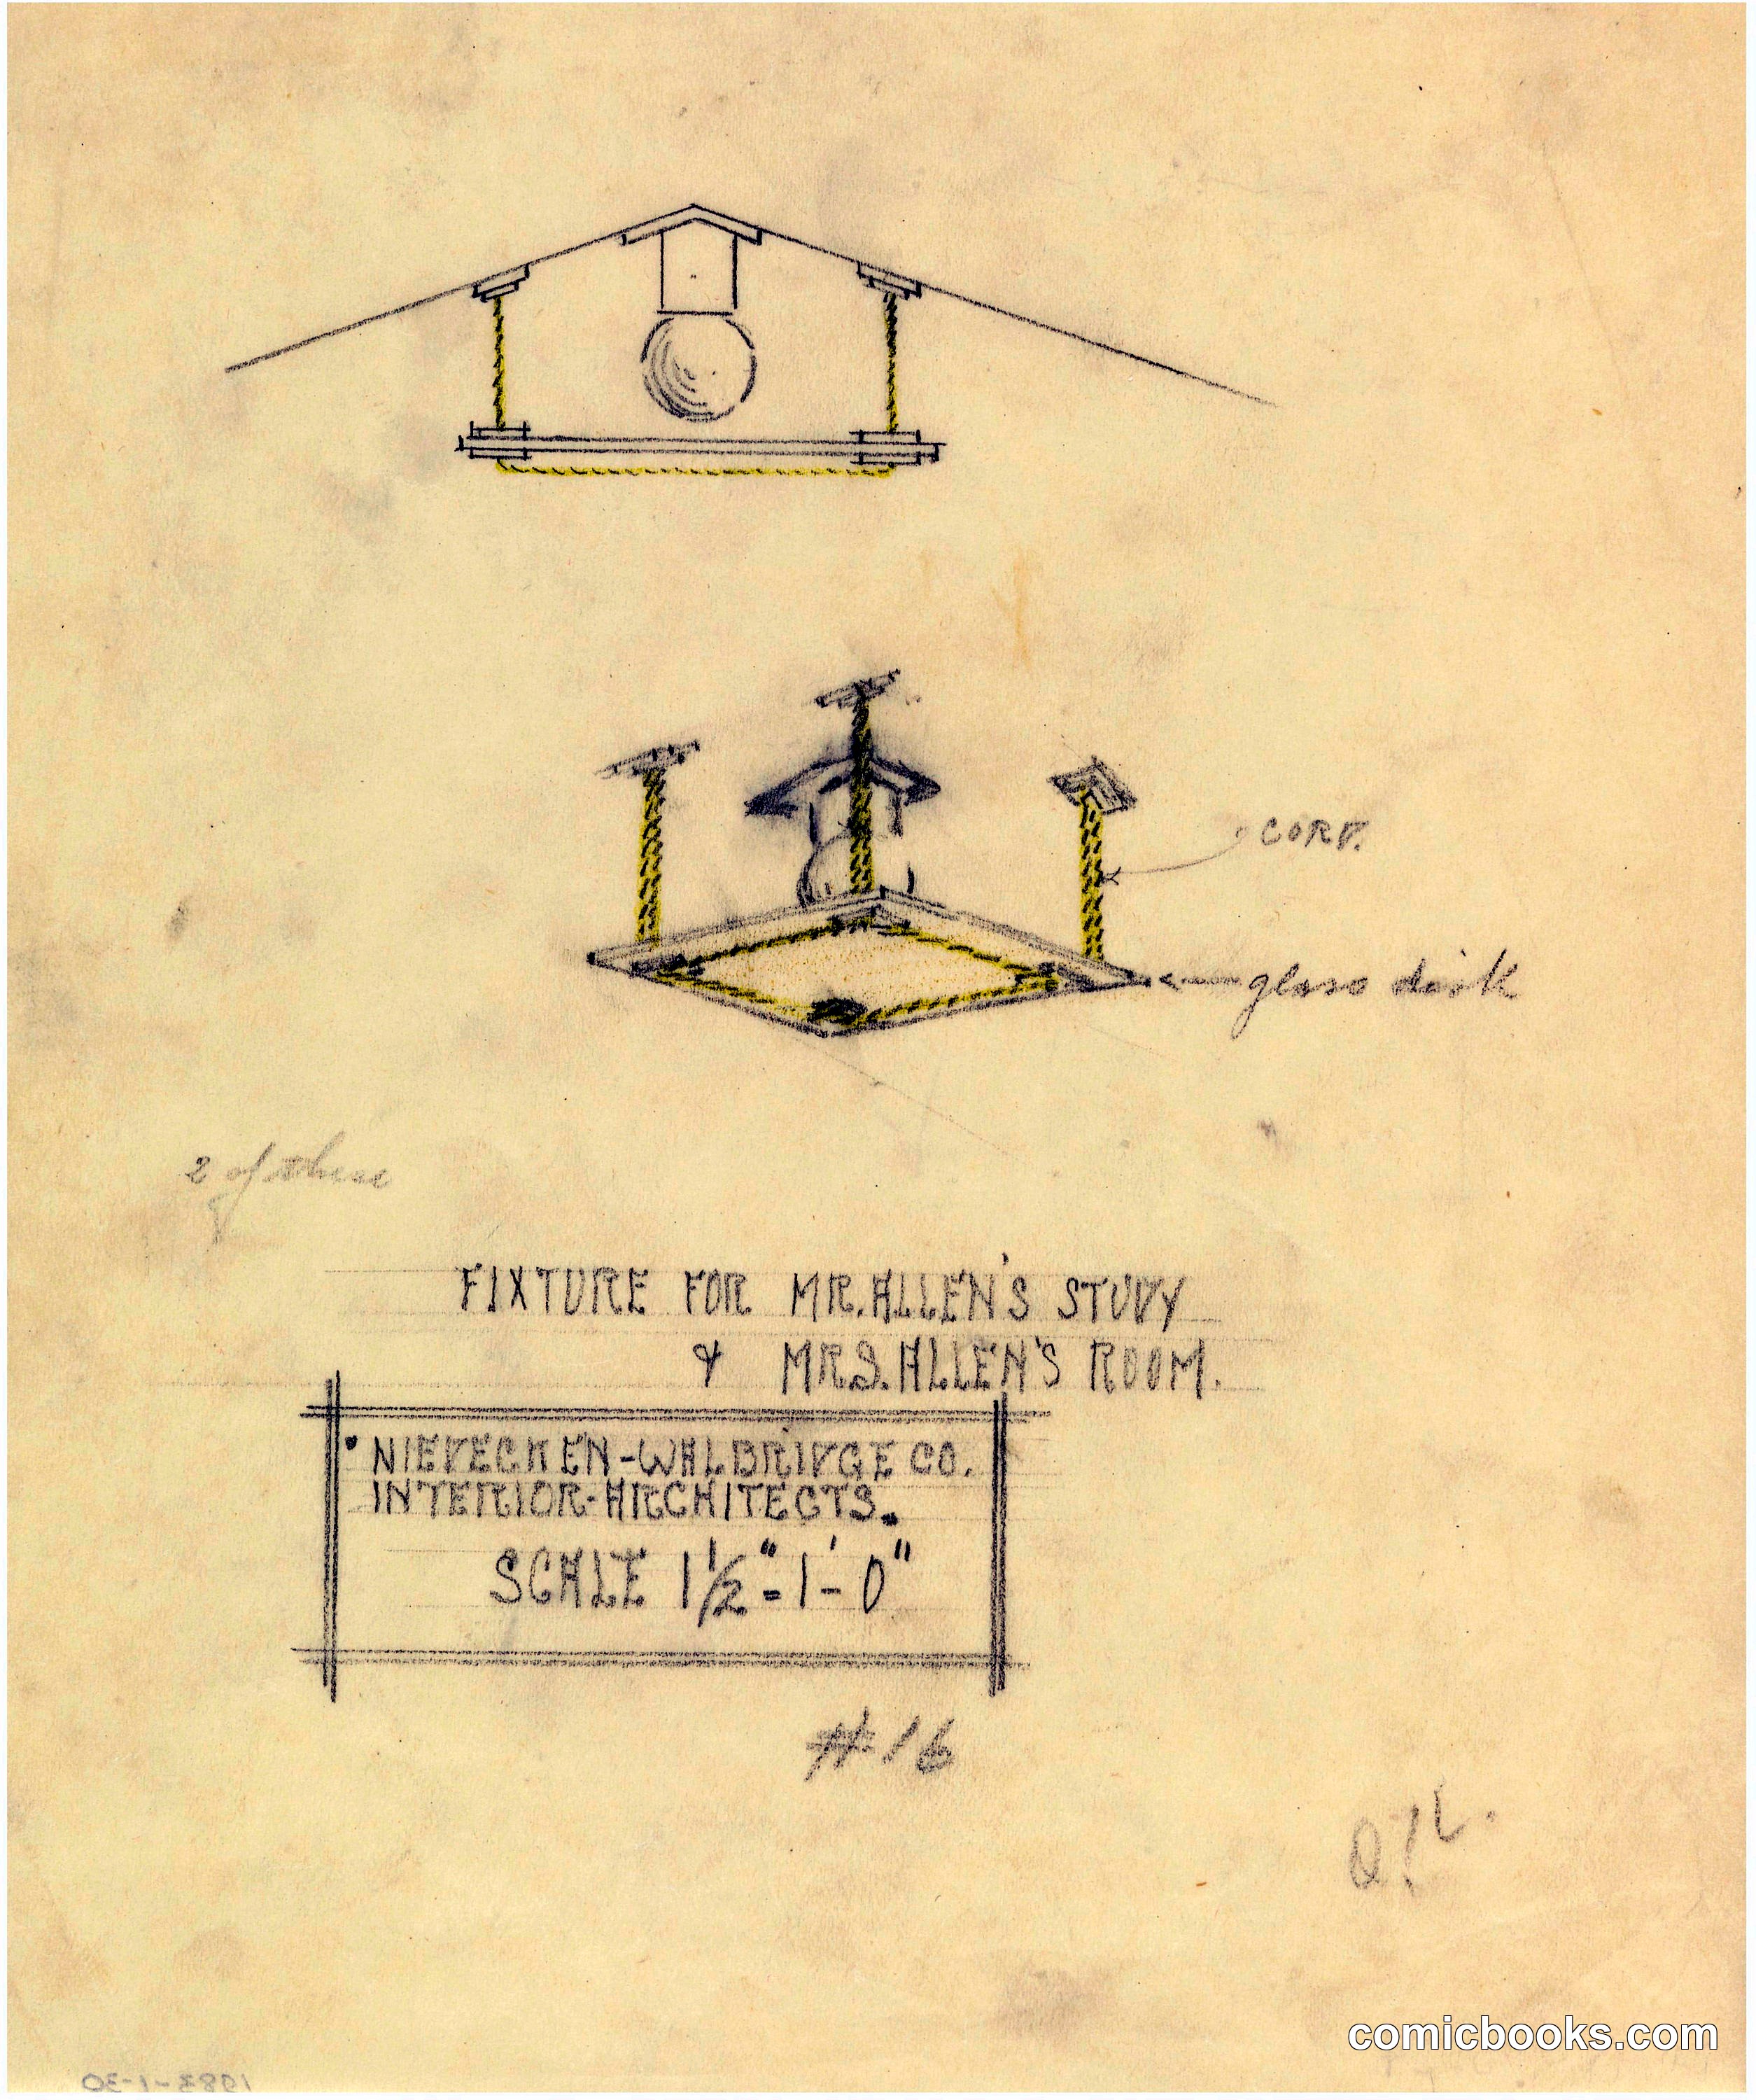 CORD.
glass disk
2 of these
FIXTURE FOR MR. ALLEN'S STUDY
& MRS. ALLEN'S ROOM.
• NIEDECKEN-WALBRIDGE CO.
INTERIOR-ARCHITECTS.
SCALE 1 1/2" = 1'-0"
#16
comicbooks.com
1983-1-30